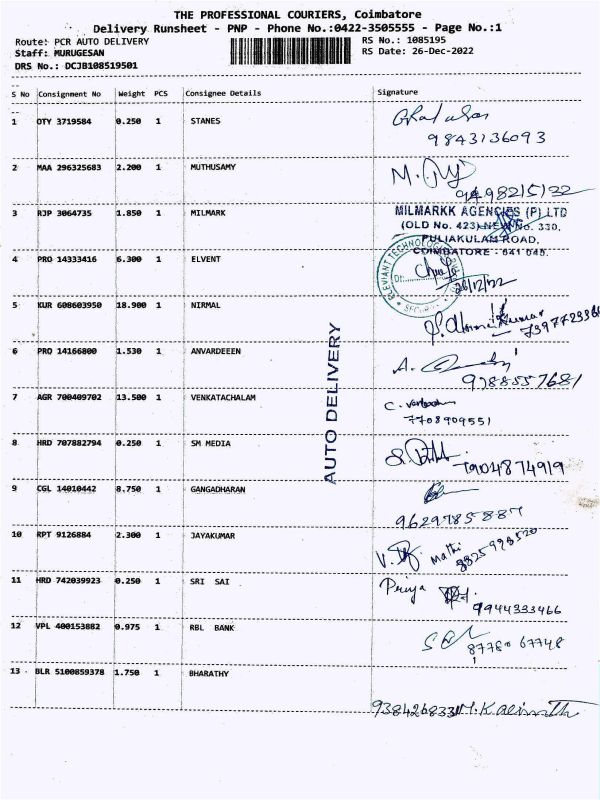 THE PROFESSIONAL COURIERS, Coimbatore
Delivery Runsheet - PNP - Phone No.:0422-3505555 - Page No.:1
Route: PCR AUTO DELIVERY RS No.: 1085195
Staff: MURUGESAN RS Date: 26-Dec-2022
DRS No.: DCJB108519501
S No Consignment No Weight PCS Consignee Details Signature
1 OTY 3719584 0.250 1 STANES
9843136093
2 MAA 296325683 2.200 1 MUTHUSAMY
9498215132
3 RJP 3064735 1.850 1 MILMARK MILMARKK AGENCIES (P) LTD
(OLD No. 423) NEW No. 330,
PULIAKULAM ROAD,
COIMBATORE - 641 045.
4 PRO 14333416 6.300 1 ELVENT
26/12/22
5 KUR 608603950 18.900 1 NIRMAL
6 PRO 14166800 1.530 1 ANVARDEEEN A.
9788557681
7 AGR 700409702 13.500 1 VENKATACHALAM
7708909551
AUTO DELIVERY
8 HRD 707882794 0.250 1 SM MEDIA
7904874919
9 CGL 14010442 8.750 1 GANGADHARAN
9629785887
10 RPT 9126884 2.300 1 JAYAKUMAR
Mathi 8825993520
11 HRD 742039923 0.250 1 SRI SAI Priya
9944333466
12 VPL 400153882 0.975 1 RBL BANK
87780 67748
13 BLR 5100859378 1.750 1 BHARATHY